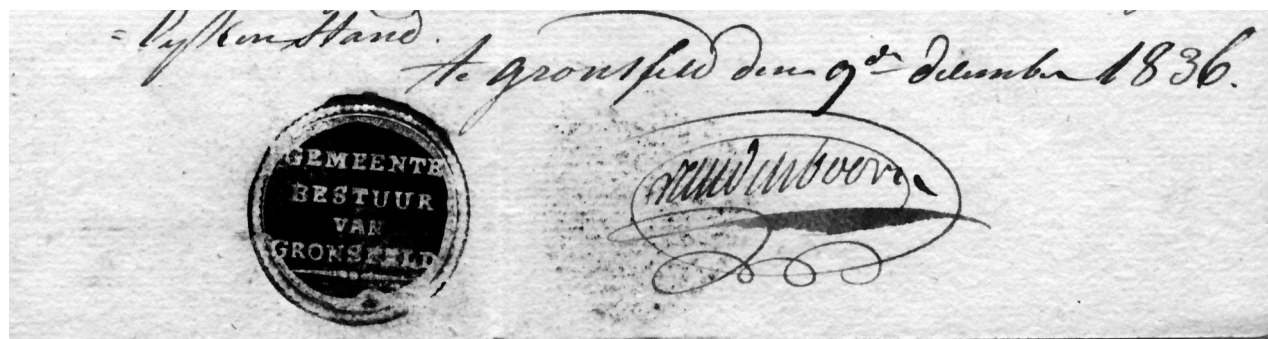 = lyken Stand.
te gronsfeld den 9de december 1836.
GEMEENTE
BESTUUR
VAN
GRONSFELD
vandenboorn